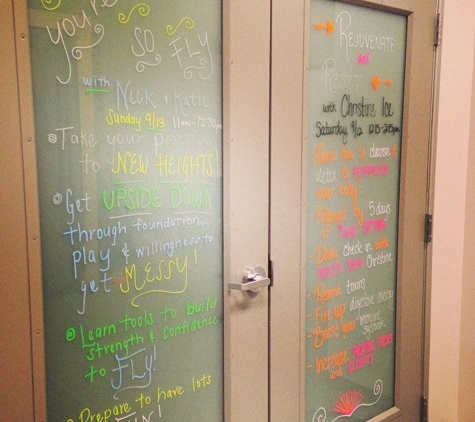 you're
so FLY
with Nick + Katie
Sunday 9/13 11am-12:30pm
Take your practice
to NEW HEIGHTS!
Get UPSIDE DOWN
through foundation,
play & willingness to
get MESSY!
Learn tools to build
strength & confidence
to FLY!
Prepare to have lots
REJUVENATE
and
RESET
with Christine
Saturday 9/12
how to
detox &
your body
Followed by 5 days
Daily check in with
Christine
- Remove toxins
- Fire up digestive energy
- Boost your immune
system
- Increase
and